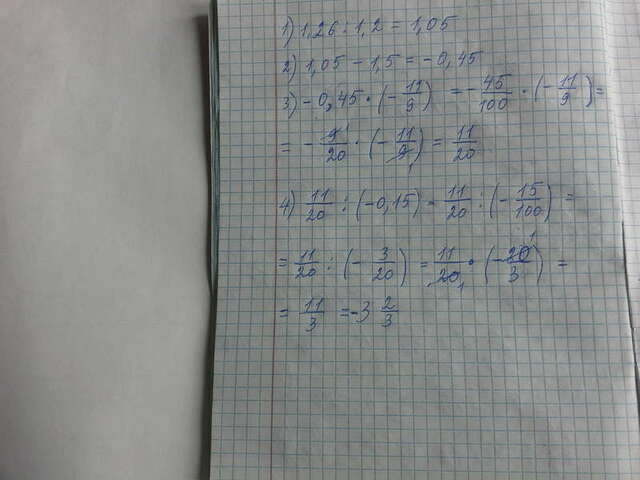 1) 1,26 : 1,2 = 1,05
2) 1,05 - 1,5 = - 0,45
3) - 0,45 · (- 11/9) = - 45/100 · (- 11/9) =
= - 9/20 · (- 11/9) = 11/20
4) 11/20 : (-0,15) = 11/20 : (- 15/100) =
= 11/20 : (- 3/20) = 11/20 · (- 20/3) =
= 11/3 = -3 2/3